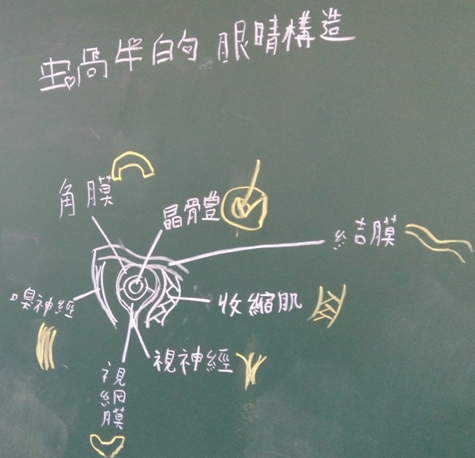 蝸牛的 眼睛構造
角膜
晶體
結膜
嗅神經
收縮肌
視神經
視網膜